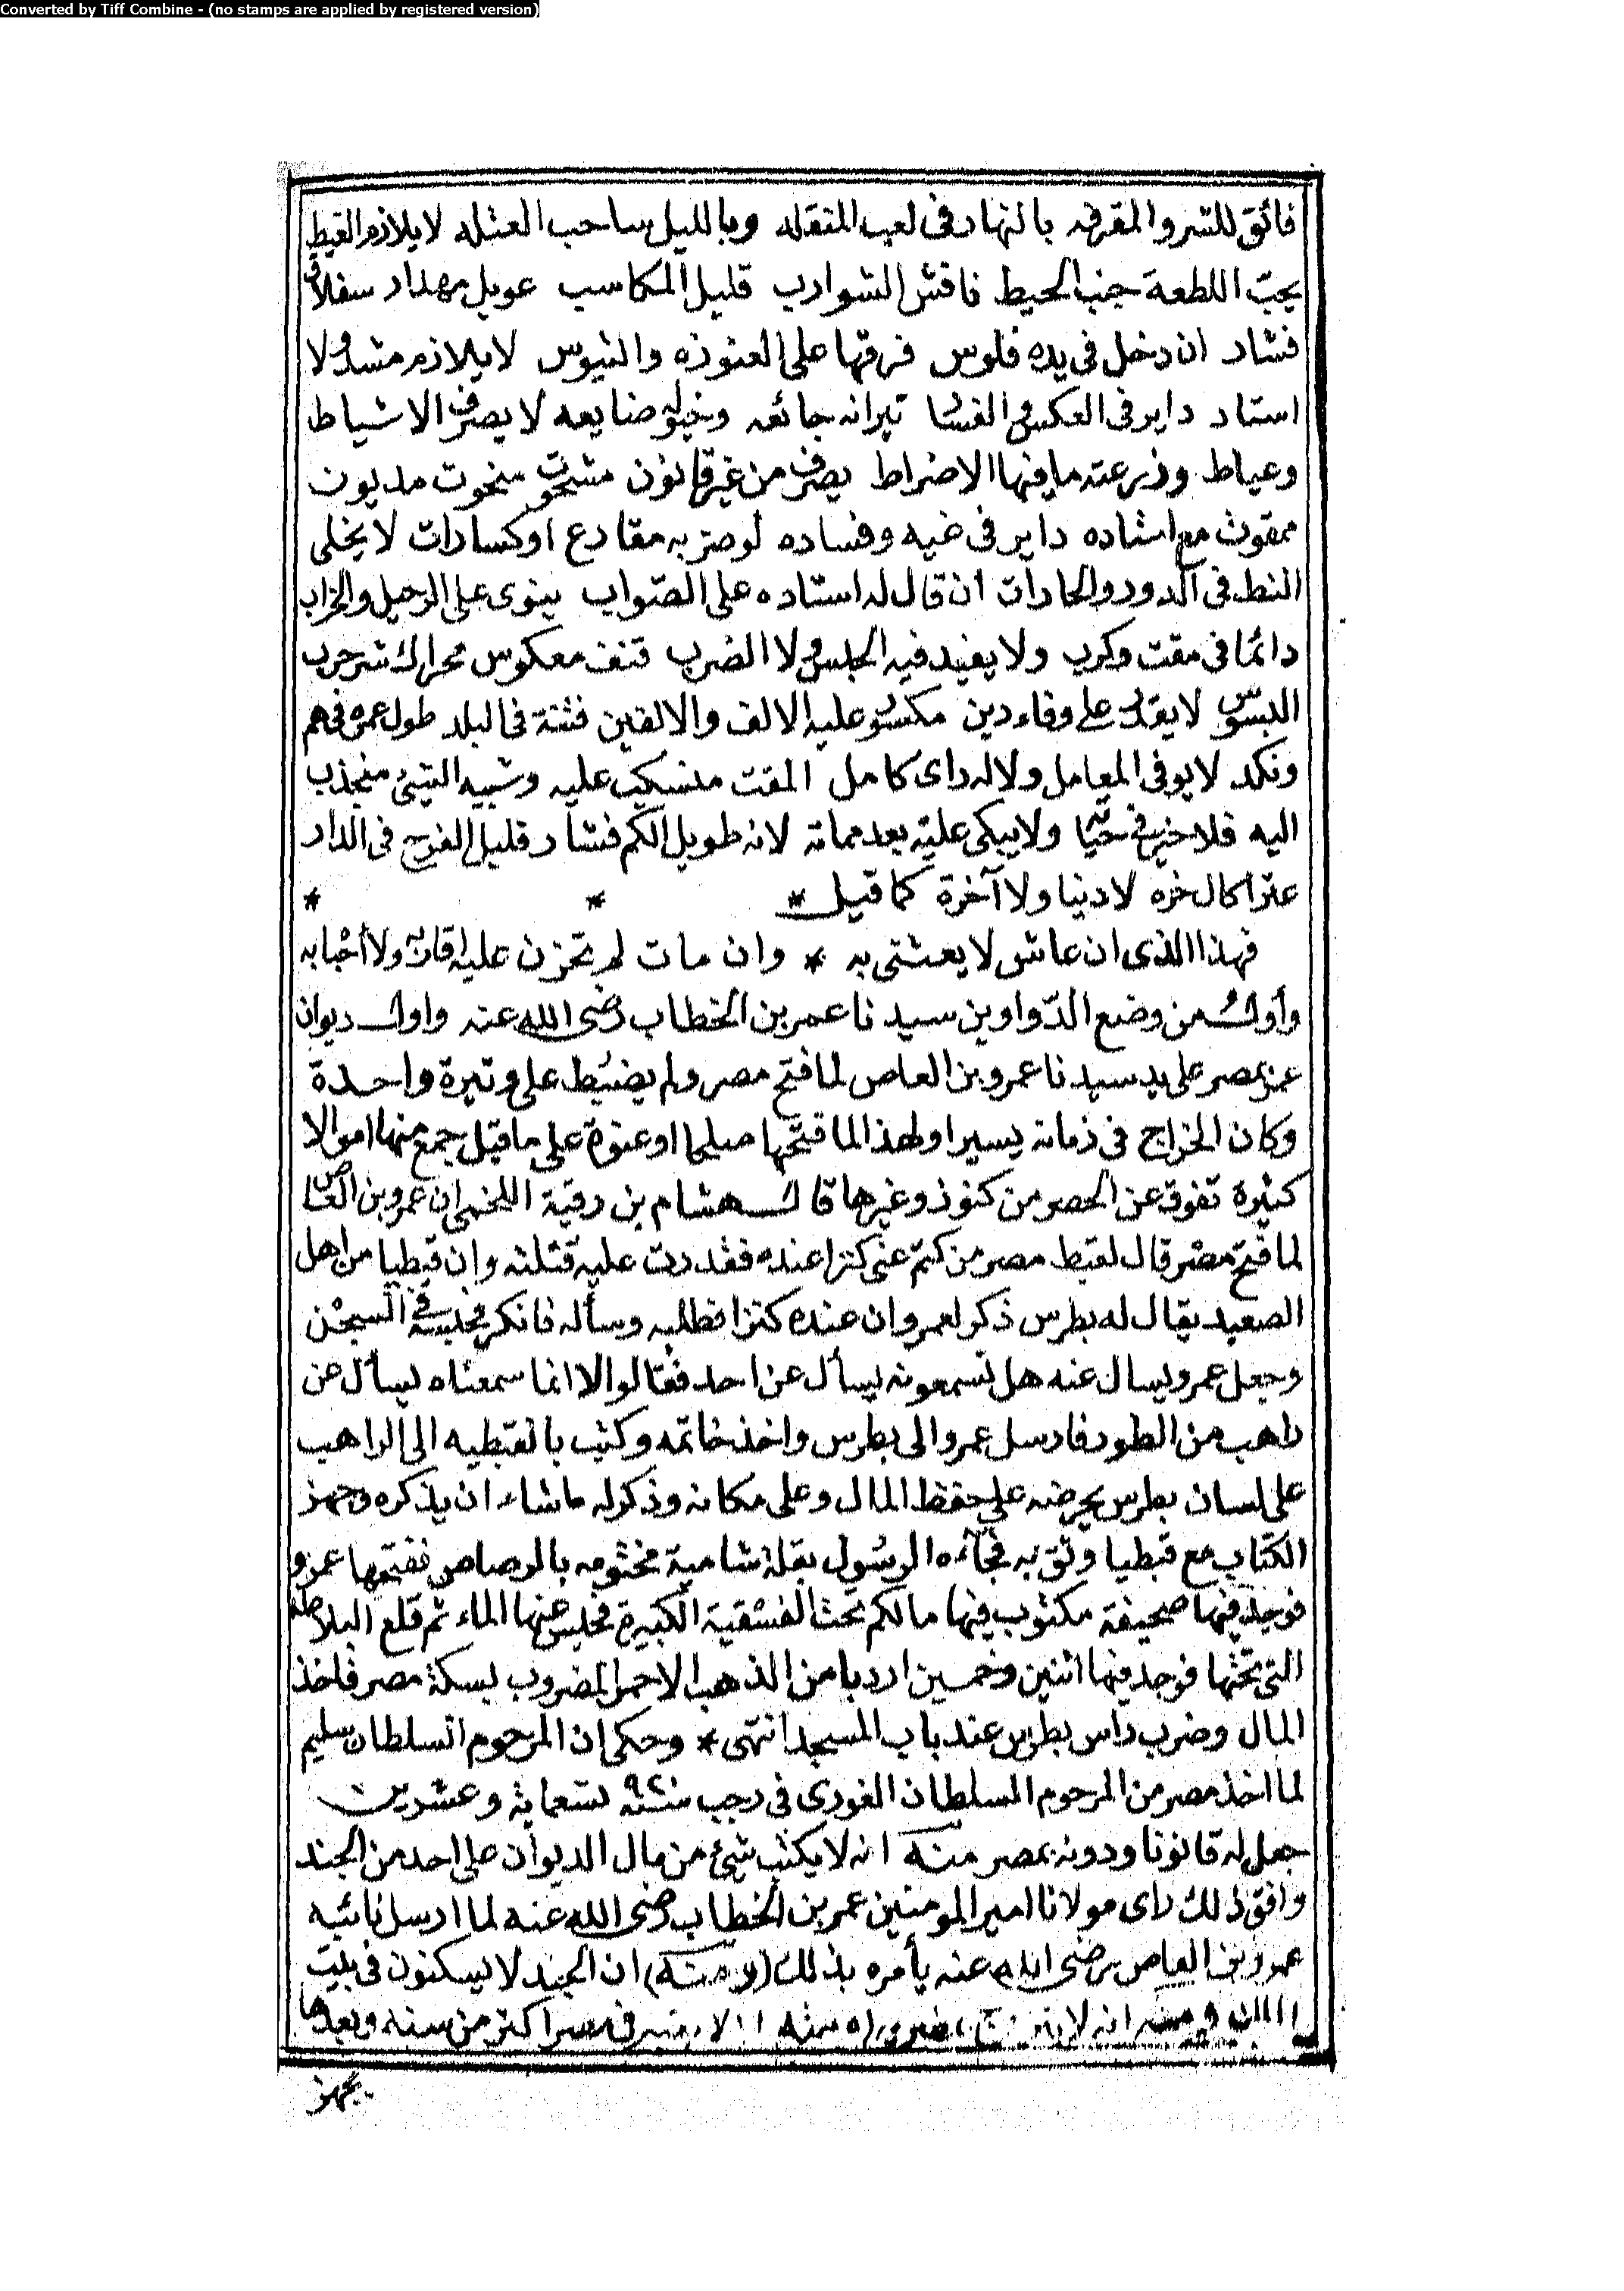 Converted by Tiff Combine - (no stamps are applied by registered version)
فائق للشر والمقرفه بالنهار فى لعب المنقله وبالليل صاحب العتله لا يلازم الغيط
يحبّ اللطعة جنب الحيط نافش الشوارب قليل المكاسب عويل مهدار سفلاق
فشار ان دخل فى يده فلوس فرقها على العنوزه والتيوس لا يلازم مشد ولا
استاد داير فى العكس والفساد تيرانه جائعه وخيوله ضايعه لا يصرف الا شياط
وعياط وزرعته ما فيها الا ضراط يصرف من غير قانون مشحوت منحوت مديون
ممقوت مع استاده داير فى غيه وفساده لو ضربه مقارع او كسارات لا يخلى
النط فى الدور والحارات ان قال له استاده على الصّواب ينوى على الرحيل والخراب
دائما فى مقت وكرب ولا يفيد فيه الحبس ولا الضرب قنف معكوس محراك شر حرب
البسوس لا يقدر على وفاء دين مكسور عليه الالف والالفين فتنة فى البلد طول عمره فى هم
ونكد لا يوفى المعامل ولا له راى كامل المقت منسكب عليه وشبيه الشيئ منجذب
اليه فلا خير فى حياته ولا يبكى عليه بعد مماته لانه طويل الكم فشار قليل الفرح فى الدار
عتر اكال خره لا دنيا ولا آخرة كما قيل * * *
فهذا الذى ان عاش لا يعتنى به * وان مات لم تحزن عليه اقاربه ولا أحبابه
وأول من وضع الدّواوين سيدنا عمر بن الخطاب رضى الله عنه واول ديوان
عمز بمصر على يد سيدنا عمرو بن العاص لما فتح مصر ولم يضبط على وتيرة واحدة
وكان الخراج فى زمانه يسيرا ولهذا لما فتحها صلحا او عنوة على ما قيل جمع منها اموالا
كثيرة تفوق عن الحصر من كنوز وغيرها قال هشام بن رقية اللخمى ان عمرو بن العاص
لما فتح مصر قال لقبط مصر من كتم عنى كنزا عنده فقدرت عليه قتلته وان قبطيا من اهل
الصعيد يقال له بطرس ذكر لعمرو ان عنده كنزا فطلبه وسأله فانكر فحبسه فى السجن
وجعل عمرو يسال عنه هل تسمعونه يسأل عن احد فقالوا لا انما سمعناه يسأل عن
راهب من الطور فارسل عمرو الى بطرس واخذ خاتمه وكتب بالقبطيه الى الراهب
على لسان بطرس يحرضه على حفظ المال وعلى مكانه وذكر له ما شاء ان يذكره وجهز
الكتاب مع قبطيا وثق به فجآءه الرسُول بقلة شامية مختومه بالرصاص ففتحها عمرو
فوجد فيها صحيفة مكتوب فيها مالكم تحت الفسقية الكبيرة فحبس عنها الماء ثم قلع البلاطه
التى تحتها فوجد فيها اثنين وخمسين اردبا من الذهب الاحمر المضروب بسكة مصر فاخذ
المال وضرب راس بطرس عند باب المسجد انتهى * وحكى ان المرحوم السلطان سليم
لما اخذ مصر من المرحوم السلطان الغورى فى رجب سنة ٩٢٠ تسعماية وعشرين
جعل له قانونا ودونه بمصر منه انه لا يكتب شئ من مال الديوان على احد من الجند
وافق ذلك راى مولانا امير المومنين عمر بن الخطاب رضى الله عنه لما ارسل نائبه
عمرو بن العاص رضى الله عنه يأمره بذلك (ومنه) ان الجند لا يسكنون فى بليت
ومنه انه لا فى مصر اكثر من سنه وبعدها
يجهز